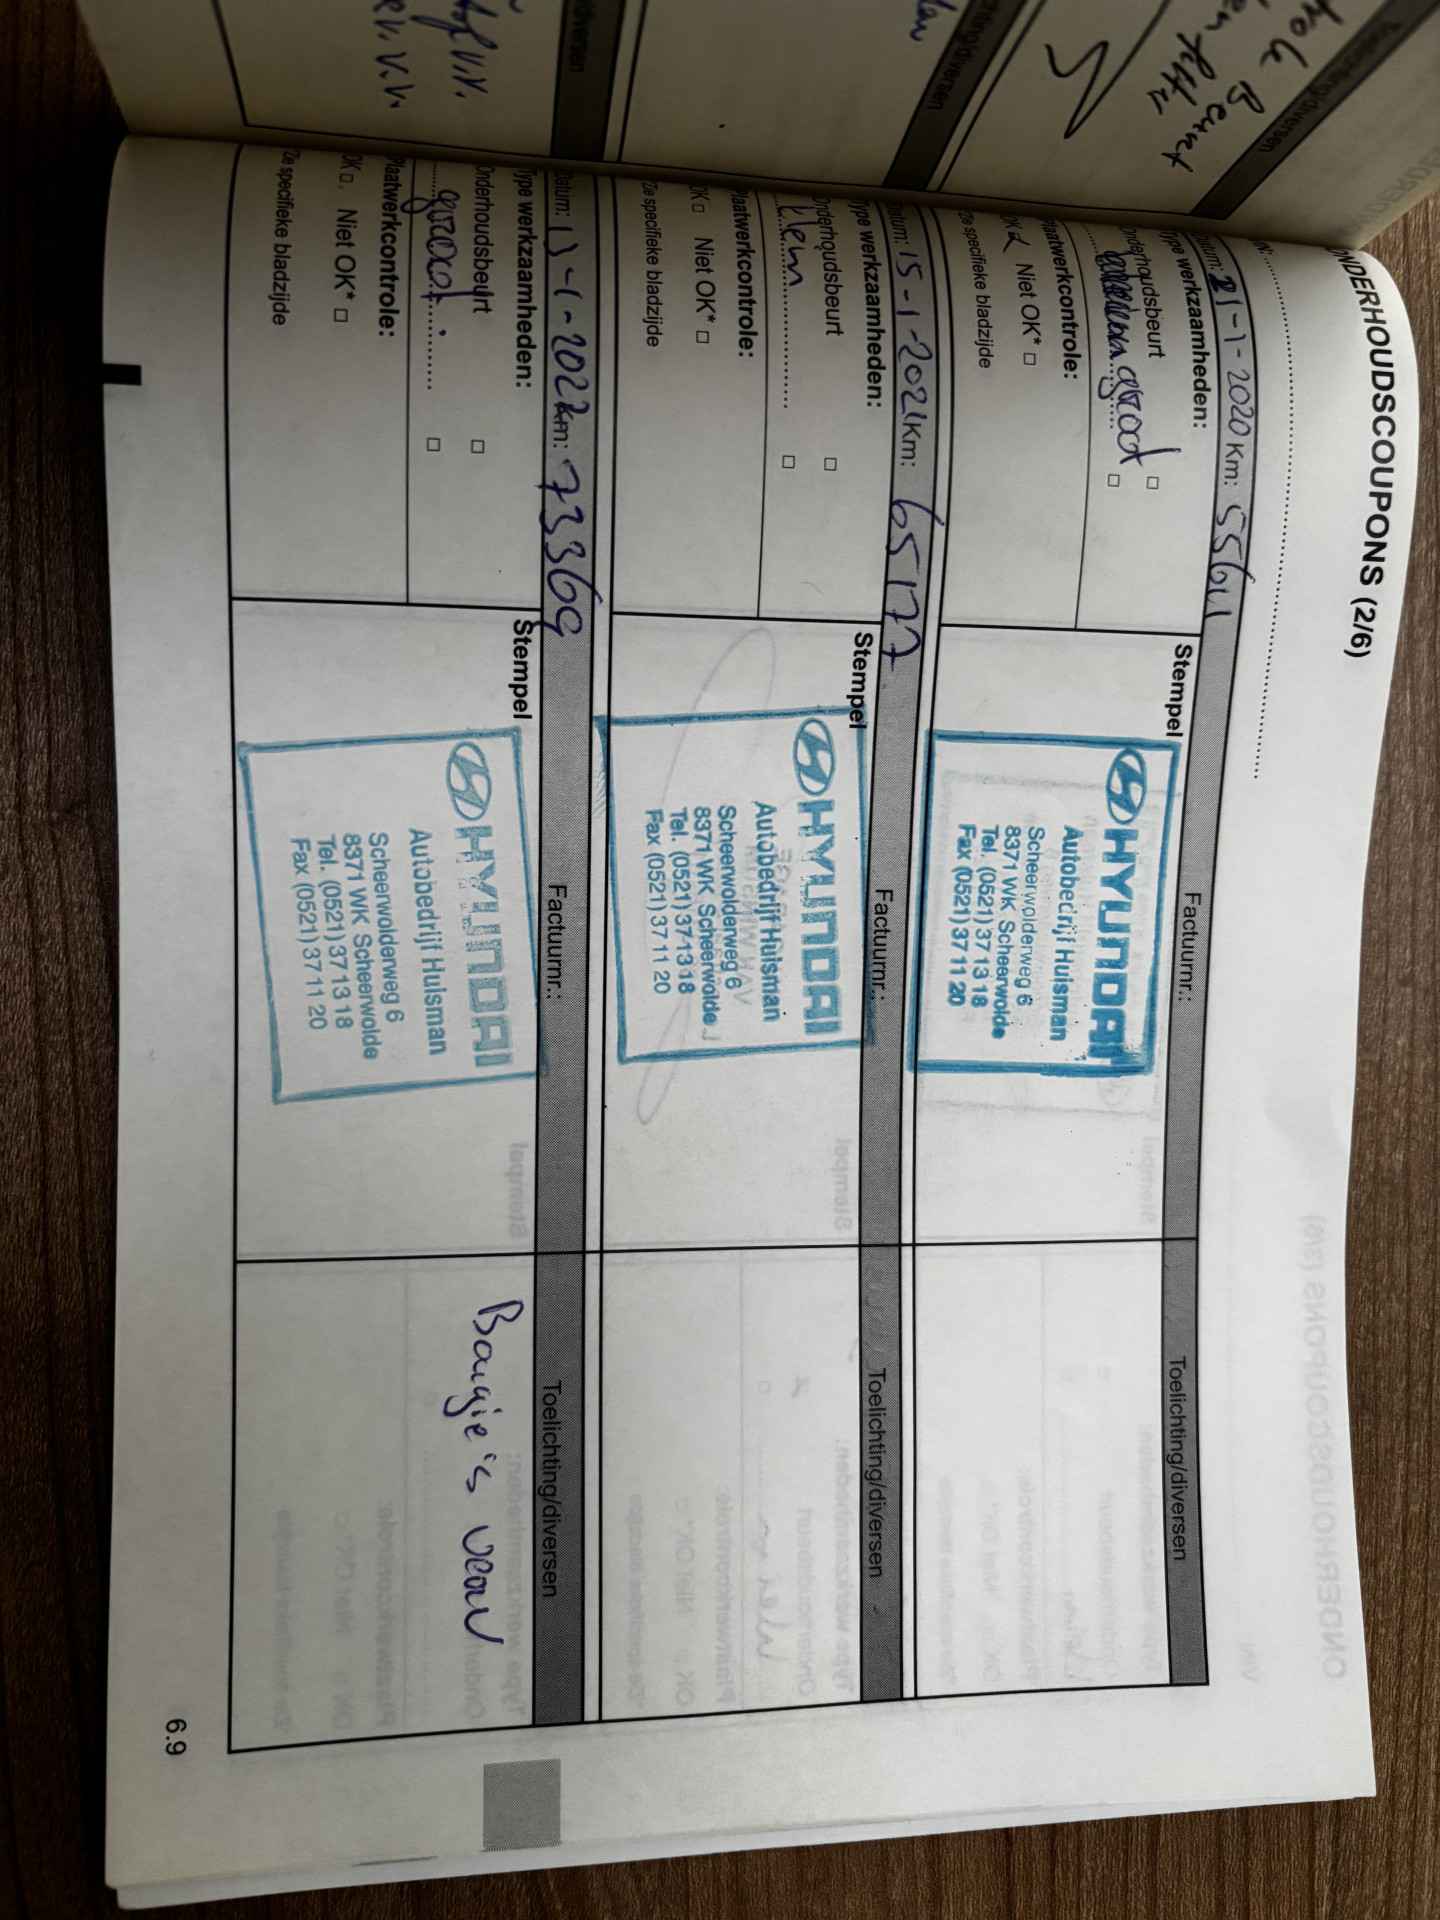 ONDERHOUDSCOUPONS (2/6)
Datum: 21-1-2020 Km: 55611
Factuurnr.:
Toelichting/diversen
Type werkzaamheden:
Onderhoudsbeurt □
groot □
Plaatwerkcontrole:
OK Niet OK* □
*Zie specifieke bladzijde
Stempel
HYUNDAI
Autobedrijf Huisman
Scheerwolderweg 6
8371 WK Scheerwolde
Tel. (0521) 37 13 18
Fax (0521) 37 11 20
Datum: 15-1-2021 Km: 65177
Factuurnr.:
Toelichting/diversen
Type werkzaamheden:
Onderhoudsbeurt □
klein □
Plaatwerkcontrole:
OK □ Niet OK* □
*Zie specifieke bladzijde
Stempel
HYUNDAI
Autobedrijf Huisman
Scheerwolderweg 6
8371 WK Scheerwolde
Tel. (0521) 37 13 18
Fax (0521) 37 11 20
Datum: 13-1-2022 km: 73369
Factuurnr.:
Toelichting/diversen
Type werkzaamheden:
Onderhoudsbeurt □
groot □
Plaatwerkcontrole:
OK □ Niet OK* □
*Zie specifieke bladzijde
Stempel
HYUNDAI
Autobedrijf Huisman
Scheerwolderweg 6
8371 WK Scheerwolde
Tel. (0521) 37 13 18
Fax (0521) 37 11 20
Bougie's
6.9